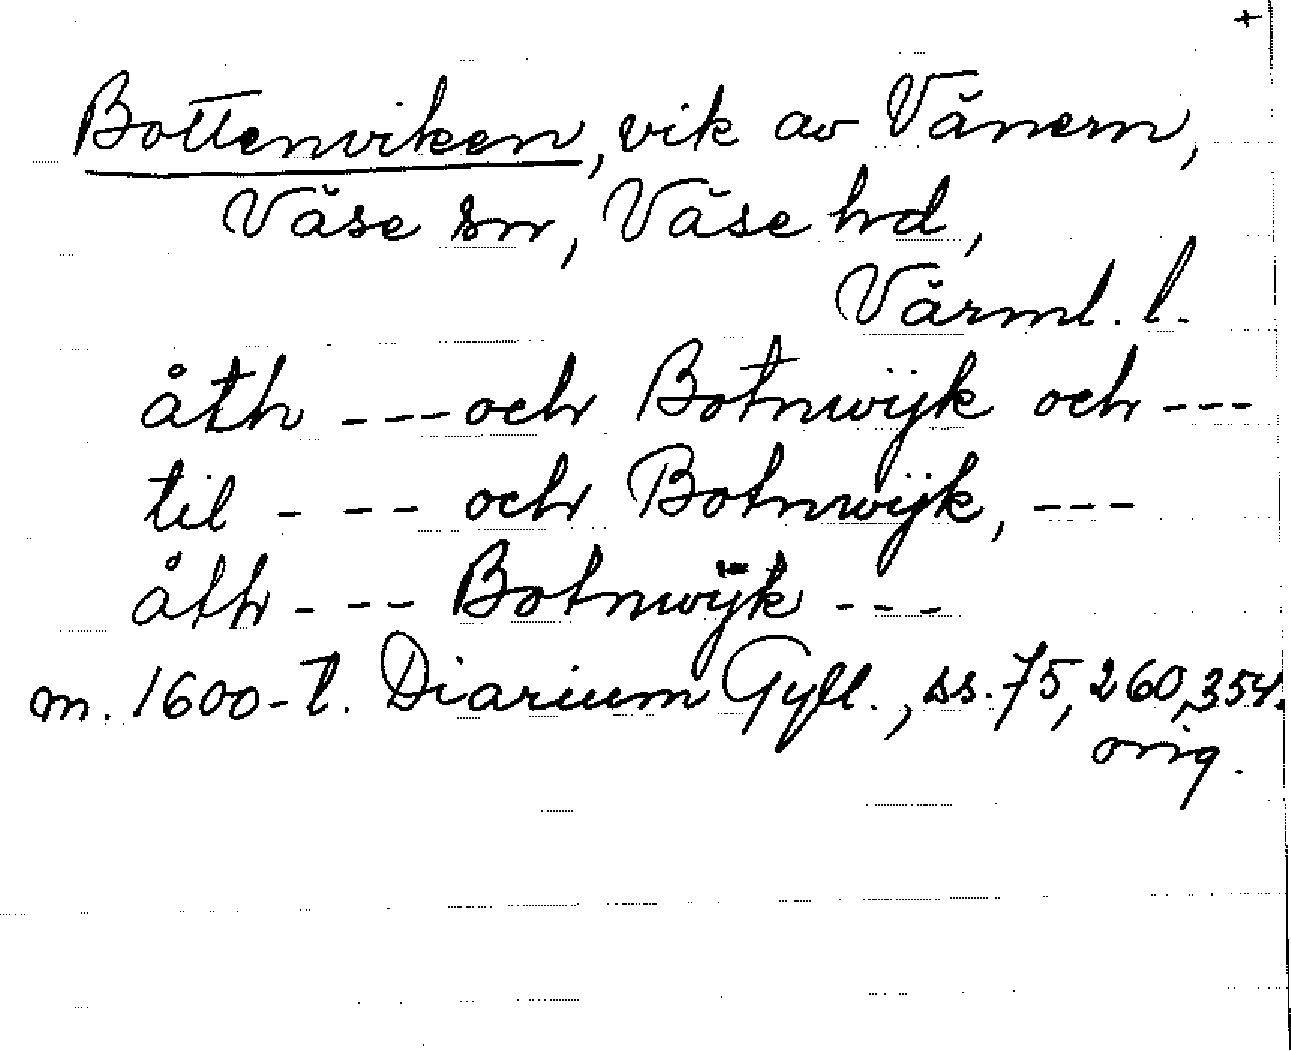 +
Bottenviken, vik av Vänern,
Väse sn, Väse hd,
Värml. l.
åth --- och Botnwijk och ---
til - -- och Botnwijk, ---
åth - -- Botnwijk ---
m. 1600-t. Diarium Gyll., ss. 75, 260, 354.
orig.